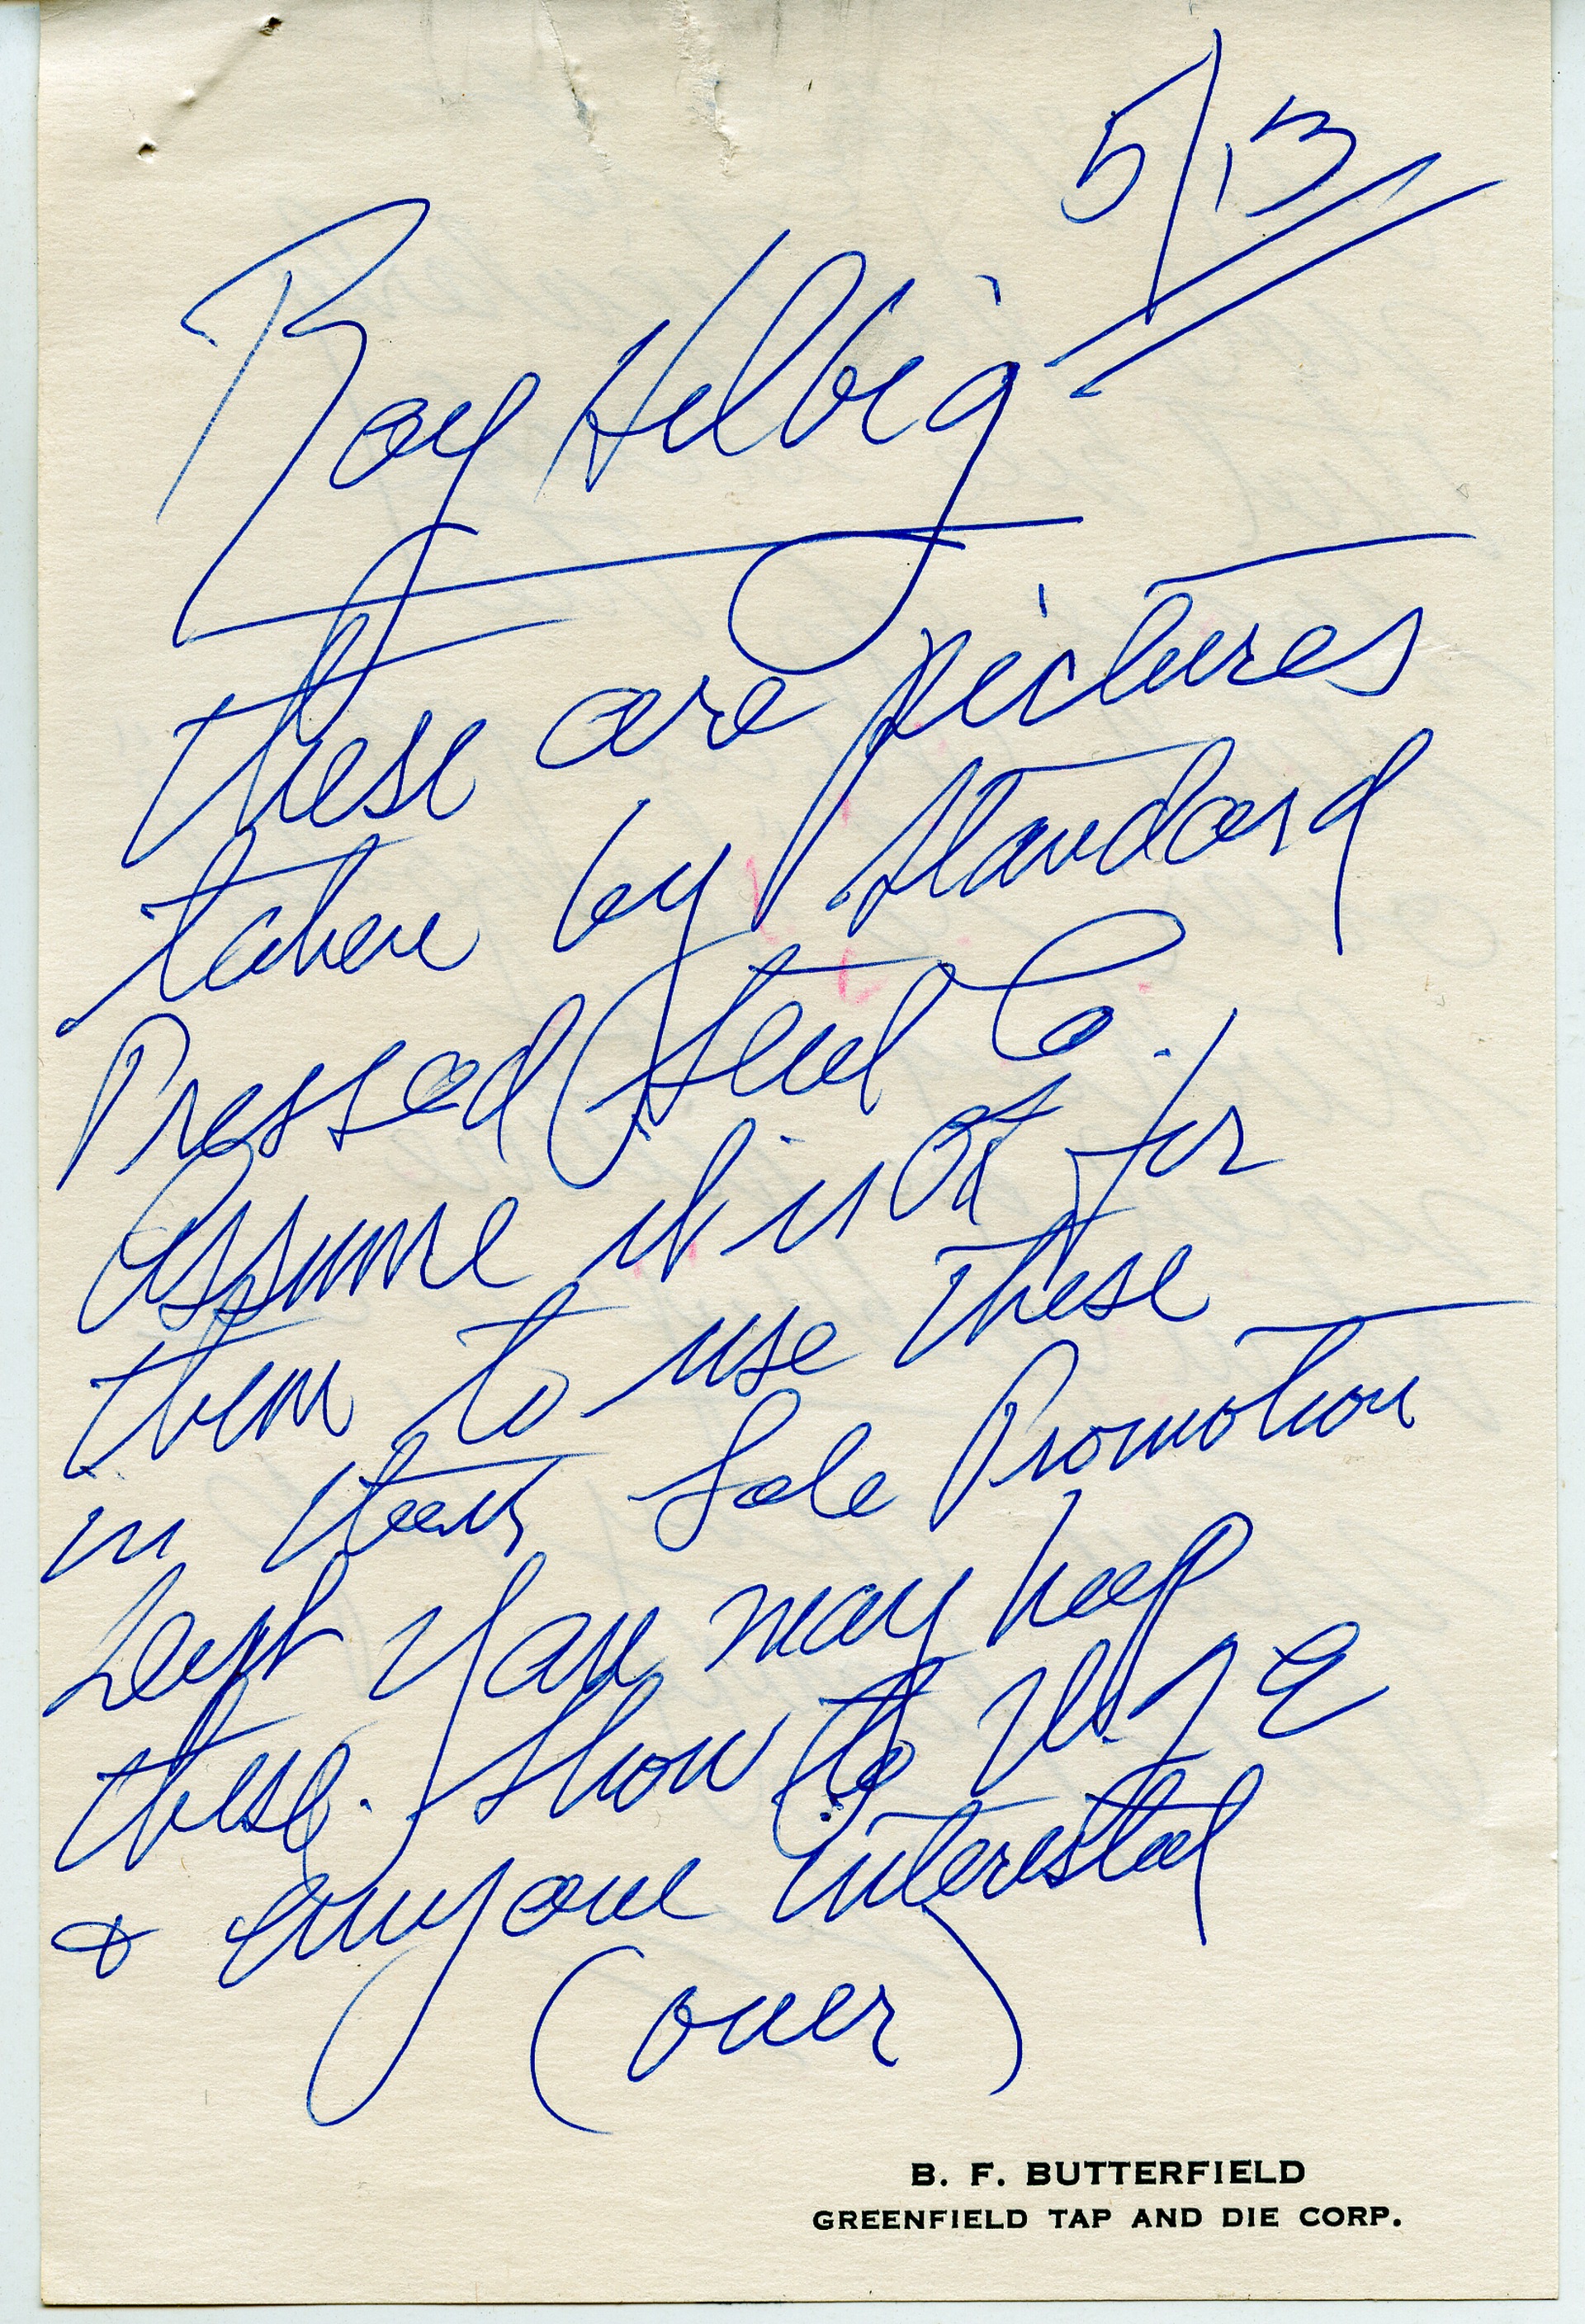 5/13
Roy Helbig
these are pictures
taken by Standard
Pressed Steel Co.
Assume it is OK for
them to use these
in their Sale Promotion
Dept You may keep
these. Show to
& anyone interested
(over)
B. F. BUTTERFIELD
GREENFIELD TAP AND DIE CORP.